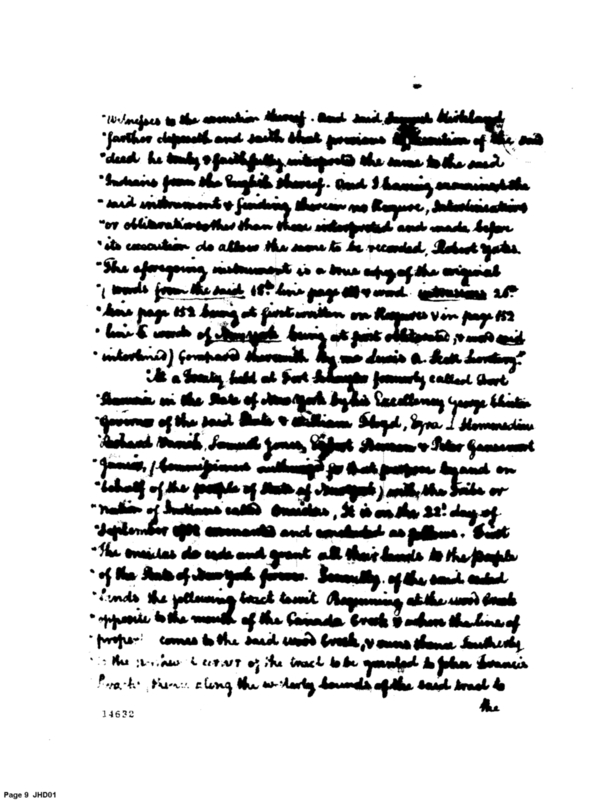 "Witnesses to the execution thereof. And said Samuel Kirkland
"farther deposeth and saith that previous execution of the said
"deed he truly & faithfully interpreted the same to the said
"Indians from the English thereof. And I having examined the
"said instrument & finding therein no Rasures, Interlineations
"or obliterations other than those interpreted and made before
"its execution do allow the same to be recorded, Robert Yates.
"The aforegoing instrument is a true copy of the original
"( words from the said 15th line page & word 26th
"line page 152 being at first written on Rasures & in page 152
"line 5 words of New York being at first obliterated, & word said
"interlined) Compared therewith by me Lewis A. Scott Secretary."
"At a Treaty held at Fort Schuyler formerly called Fort
"Stanwix in the State of New York by his Excellency George Clinton
"Governor of the said State & William Floyd, Ezra L Hommedieu
"Richard Varick, Samuel Jones, Egbert Benson & Peter Gansevoort
"Junior, (Commissioners authorized for that purpose by and on
"behalf of the people of State of New york) with the Tribe or
"nation of Indians called Oneidas, It is on the 22d. day of
"September covenanted and concluded as follows. First
"The oneidas do cede and grant all their lands to the People
"of the State of New York forever. Secondly of the said ceded
"Lands the following tract towit Beginning at the wood Creek
"opposite to the mouth of the Canada Creek & where the line of
"property comes to the said wood Creek, & runs thence Southerly
"to the corner of the tract to be granted to John Francis
thence along the westerly bounds of the said tract to
the
14632
Page 9 JHD01